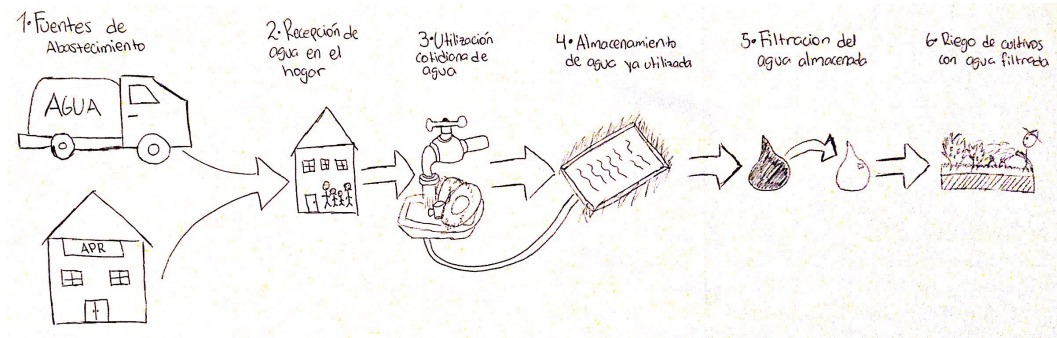 1. Fuentes de
Abastecimiento
2. Recepción de
agua en el
hogar
3. Utilización
cotidiana de
agua
4. Almacenamiento
de agua ya utilizada
5. Filtracion del
agua almacenada
6. Riego de cultivos
con agua filtrada
AGUA
APR